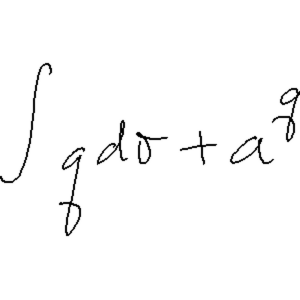 ∫ q dσ + a^q